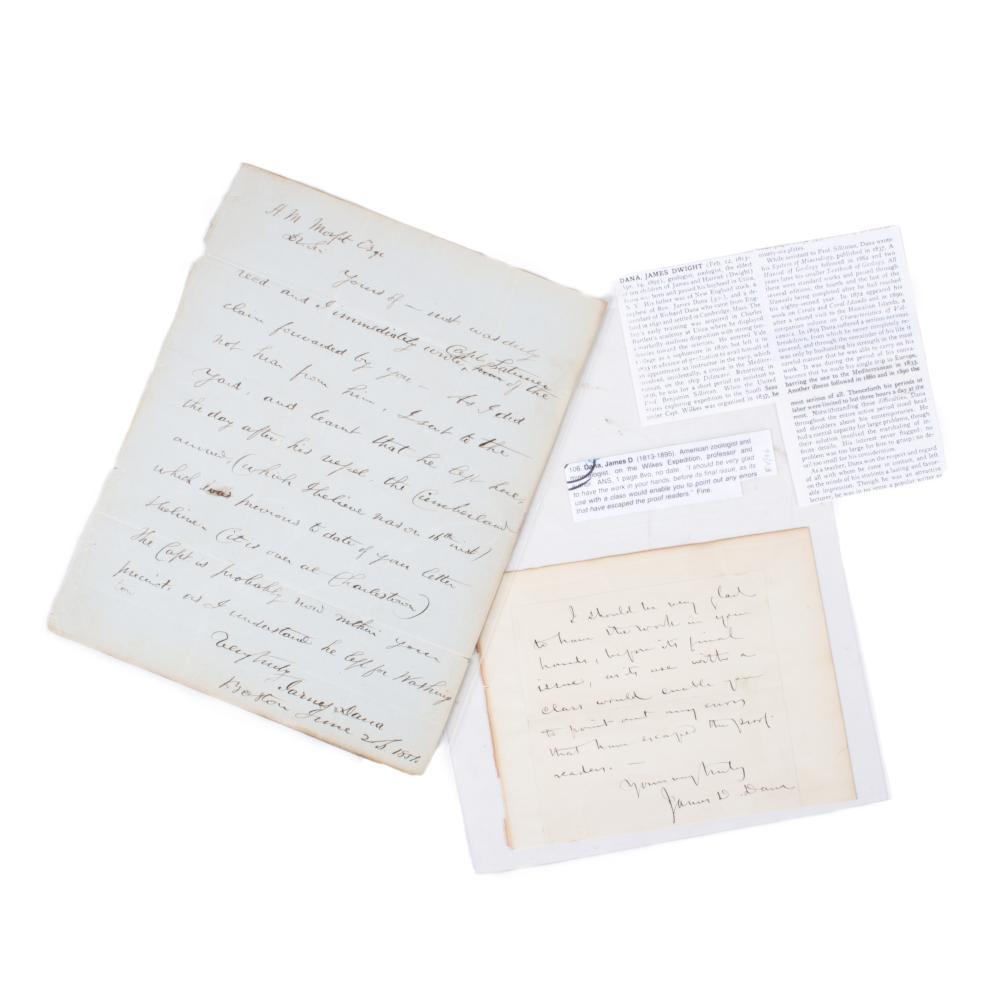 A M
Dr Sir
Yours of — inst was duly
recd and I immediately wrote
Capt. Latimer
claim forwarded by you — As I did
not hear from him, I sent to the
Yard, and learnt that he left here,
the day after his vessel, the Cumberland
arrived (which I believe was on 16th inst)
which was previous to date of your letter
to him (it is over at Charlestown)
The Capt is probably now within your
precinct, as I understand he left for Washing
ton
Very truly
James Dana
Boston June 1851.
DANA, JAMES DWIGHT (Feb. 12, 1813-
Apr. 14, 1895), geologist, zoologist, the eldest
children of James and Harriet (Dwight)
Dana, was born and passed his boyhood in Utica,
N. Y. His father was of New England stock, a
nephew of Rev. James Dana [q.v.], and a de-
scendant of Richard Dana who came from Eng-
land in 1640 and settled at Cambridge, Mass. The
early training was acquired in Charles
Bartlett's academy at Utica where he displayed
a studious disposition with strong ten-
dencies toward the sciences. He entered Yale
College as a sophomore in 1830, but left it in
1833 in advance of graduation to avail himself of
an appointment as instructor in the navy, which
involved, incidentally, a cruise in the Mediter-
ranean, on the ship Delaware. Returning in
he was for a short period an assistant to
Prof. Benjamin Silliman. When the United
States exploring expedition to the South Seas
under Capt. Wilkes was organized in 1837, he
plates.
While assistant to Prof. Silliman, Dana wrote
his System of Mineralogy, published in 1837. A
Manual of Geology followed in 1862 and two
years later his smaller Textbook of Geology. All
these were standard works and passed through
several editions, the fourth and the last of the
Manuals being completed after he had reached
his eighty-second year. In 1872 appeared his
work on Corals and Coral Islands and in 1890,
after a second visit to the Hawaiian Islands, a
companion volume on Characteristics of Vol-
canoes. In 1859 Dana suffered a serious nervous
breakdown, from which he never completely re-
covered, and through the remainder of his life it
was only by husbanding his strength in the most
careful manner that he was able to carry on his
work. It was during the period of his conva-
lescence that he made his single trip to Europe,
barring the one to the Mediterranean in 1833.
Another illness followed in 1880 and in 1890 the
most serious of all. Thenceforth his periods of
labor were limited to but three hours a day at the
most. Notwithstanding these difficulties, Dana
throughout the entire active period stood head
and shoulders above his contemporaries. He
had a mental capacity for large problems, though
their solution involved the marshaling of
details. His interest never flagged; no
problem was too large for him to grasp; no de-
tail too small for his consideration.
As a teacher, Dana won the respect and regard
of all with whom he came in contact, and left
on the minds of his students a lasting and favor-
able impression. Though he was an attractive
lecturer, he was in no sense a popular writer or
106. Dana, James D. (1813-1895) American zoologist and
on the Wilkes Expedition, professor and
ANS, 1 page 8vo, no date. "I should be very glad
to have the work in your hands, before its final issue, as its
use with a class would enable you to point out any errors
that have escaped the proof readers" Fine.
I should be very glad
to have the work in your
hands, before its final
issue, as its use with a
class would enable you
to point out any errors
that have escaped the proof-
readers. —
Yours very truly
James D. Dana